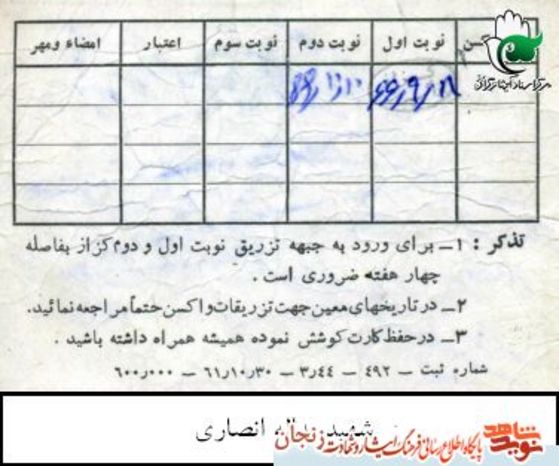 کسن نوبت اول نوبت دوم نوبت سوم اعتبار امضاء ومهر
مرکز اسناد ایثارگران
تذکر : ۱ــ برای ورود به جبهه تزریق نوبت اول و دوم کزاز بفاصله
چهار هفته ضروری است .
۲ــ در تاریخهای معین جهت تزریقات واکسن حتماً مراجعه نمائید.
۳ــ در حفظ کارت کوشش نموده همیشه همراه داشته باشید .
شماره ثبت ــ ۴۹۲ ــ ۳٫۴۴ ــ ۶۱٫۱۰٫۳۰ ــ ۶۰۰٫۰۰۰
شهید انصاری
نوید شاهد پایگاه اطلاع رسانی فرهنگ ایثار و شهادت زنجان